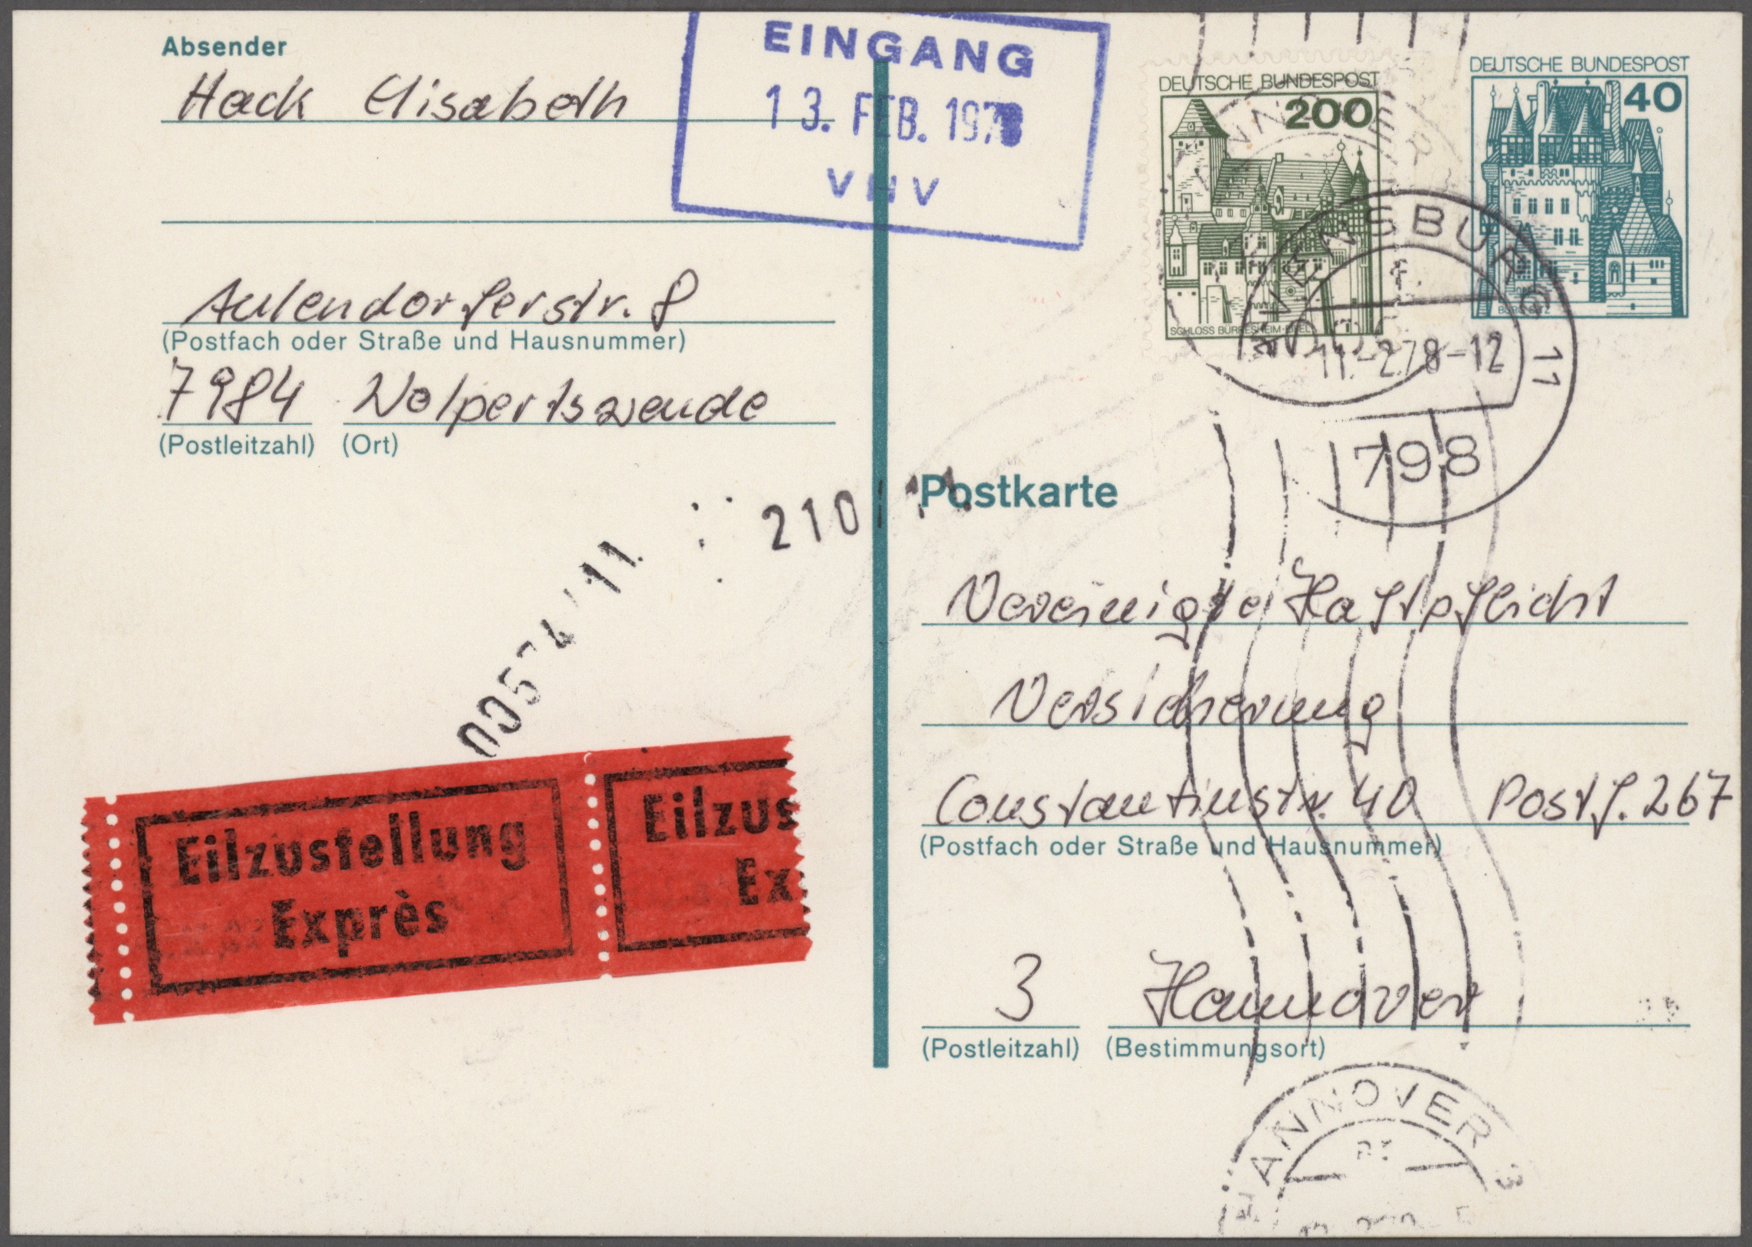 Absender
Hack Elisabeth
Aulendorferstr. 8
(Postfach oder Straße und Hausnummer)
7984 Wolpertswende
(Postleitzahl) (Ort)
EINGANG
13. FEB. 1978
VHV
DEUTSCHE BUNDESPOST
200
SCHLOSS BÜRRESHEIM-EIFEL
DEUTSCHE BUNDESPOST
40
BURG ELTZ
RAVENSBURG 11
11.-2.78-12
798
210
Postkarte
Vereinigte Haftpflicht
Versicherung
Constantinstr. 40 Postf. 267
(Postfach oder Straße und Hausnummer)
3 Hannover
(Postleitzahl) (Bestimmungsort)
Eilzustellung
Exprès
Eilzus
Ex
HANNOVER